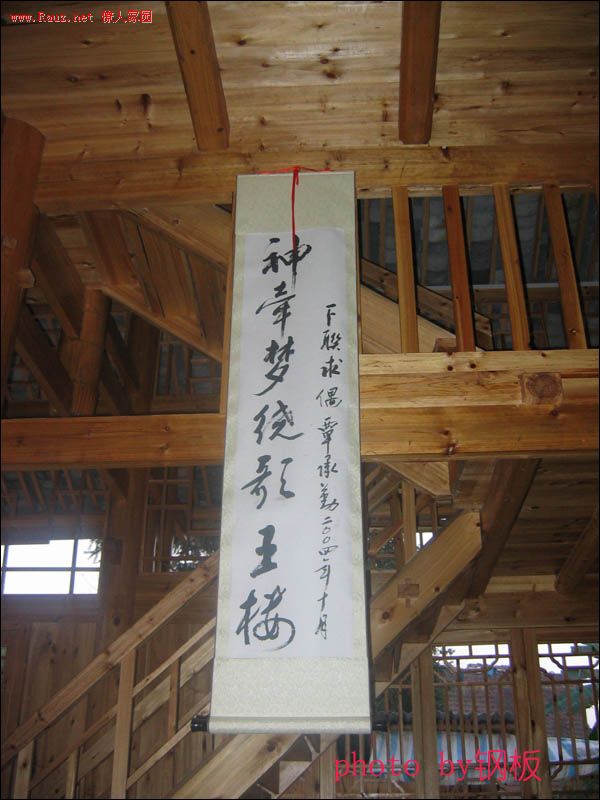 www.Rauz.net 僚人家园
神牵梦绕歌王楼
下联求偶 覃承勤 二〇〇四年十月
photo by钢板